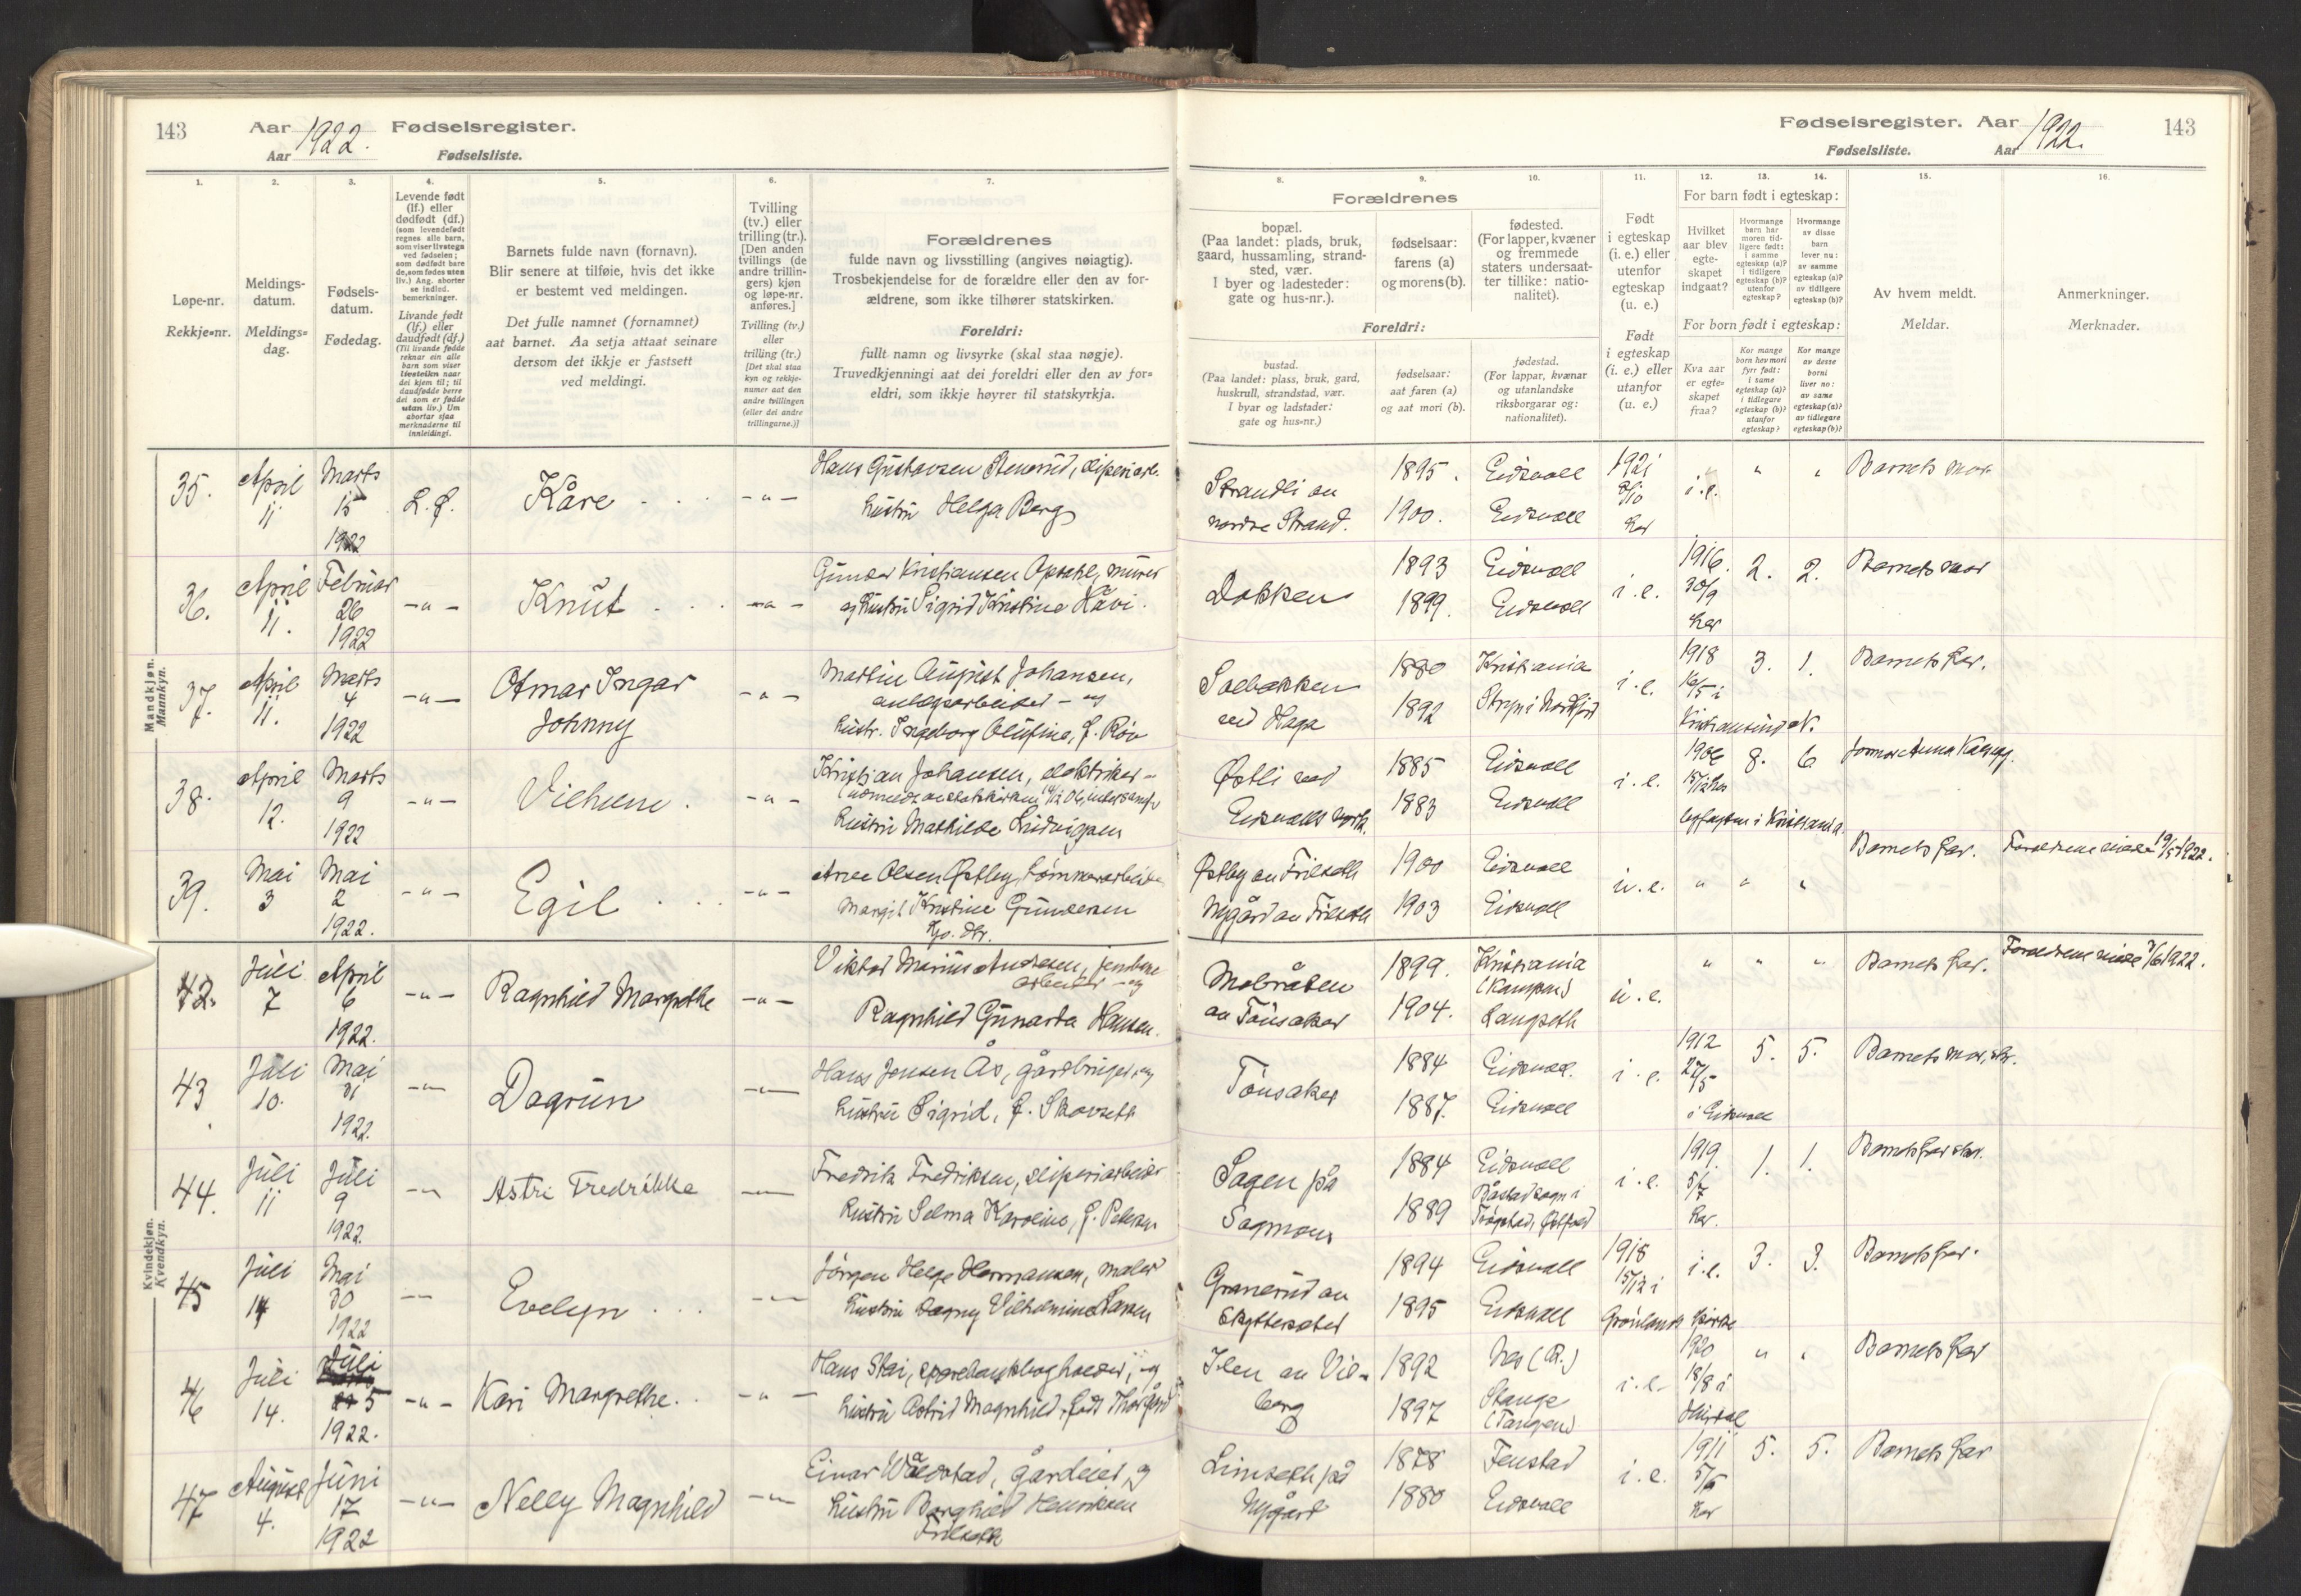 143
Aar 1922.
Fødselsregister.
Aar
Fødselsliste.
1.
2.
3.
4.
5.
6.
7.
Løpe-nr.
Rekkje=nr.
Meldings-
datum.
Meldings=
dag.
Fødsels-
datum.
Fødedag.
Levende født
(lf.) eller
dødfødt (df.)
(som levendefødt
regnes alle barn,
som viser livstegn
ved fødselen;
som dødfødt bare
de, som fødes uten
liv.) Ang. aborter
se indled.
bemerkninger.
Livande født
(lf.) eller
daudfødt (df.)
(Til livande fødde
reknar ein alle
barn som viser
livsteikn naar
dei kjem til; til
daudfødde berre
dei som er fødde
utan liv.) Um
abortar sjaa
merknaderne til
innleidingi.
Barnets fulde navn (fornavn).
Blir senere at tilføie, hvis det ikke
er bestemt ved meldingen.
Det fulle namnet (fornamnet)
aat barnet. Aa setja attaat seinare
dersom det ikkje er fastsett
ved meldingi.
Tvilling
(tv.) eller
trilling (tr.).
[Den anden
tvillings (de
andre trillin-
gers) kjøn
og løpe-nr.
anføres.]
Tvilling (tv.)
eller
trilling (tr.)
[Det skal staa
kyn og rekkje-
numer aat den
andre tvillingen
(eller dei andre
trillingarne.)]
Forældrenes
fulde navn og livsstilling (angives nøiagtig).
Trosbekjendelse for de forældre eller den av for-
ældrene, som ikke tilhører statskirken.
Foreldri:
fullt namn og livsyrke (skal staa nøgje).
Truvedkjenningi aat dei foreldri eller den av for=
eldri, som ikkje høyrer til statskyrkja.
Mandkjøn.
Mannkyn.
35.
April
11
Marts
15
1922
L.f.
Kåre
Hans Gustavsen Stenerud, sliperiarb.
hustru Helga Berg
36.
April
11.
Februar
26
1922
Knut
Gunder Kristiansen Opsahl, murer
og hustru Sigrid Kristine Håvi.
37.
April
11.
Marts
4
1922
Otmar Ingar
Johnny
Martin August Johansen,
anlegsarbeider - og
hustr. Ingeborg Olufine, f.
38.
April
12.
Marts
9
1922
Vilhelm.
Kristian Johansen, elektriker -
hustru Mathilde Ludvigsen
39.
Mai
3
Mai
2
1922.
Egil
Arne Olsen Østby, tømmerarbeider
Margit Kristine Gundersen
Kvindekjøn.
Kvendkyn.
42.
Juli
7
April
6
1922.
Ragnhild Margrethe
Viktor Marius Andresen, jernbane
arbeider - og
Ragnhild Gunarda Hansen.
43
Juli
10.
Mai
31
1922.
Dagrun
Hans Jensen Ås, gårdbruger, og
hustru Sigrid, f. Skovseth
44.
Juli
11
Juli
9
1922.
Astri Fredrikke
Fredrik Fredriksen, sliperiarbeider
hustru Selma Karoline, f. Petersen
45
Juli
14
Mai
30
1922
Evelyn
Jørgen Helge Hermansen, maler
hustru Dagny Vilhelmine Larsen
46
Juli
14.
Juli
5
1922.
Kari Margrethe.
Hans Stai, sparebankbogholder, og
hustru Astrid Magnhild, født
47
August
4.
Juni
17
1922
Nelly Magnhild
Einar Wålerstad, gårdeier, og
hustru Borghild Henriksen
Frilseth
Fødselsregister. Aar 1922.
143
Fødselsliste.
Aar
8.
9.
10.
11.
12.
13.
14.
15.
16.
Forældrenes
bopæl.
(Paa landet: plads, bruk,
gaard, hussamling, strand-
sted, vær.
I byer og ladesteder:
gate og hus-nr.).
fødselsaar:
farens (a)
og morens (b).
fødested.
(For lapper, kvæner
og fremmede
staters undersaat-
ter tillike: natio-
nalitet).
Foreldri:
bustad.
(Paa landet: plass, bruk, gard,
huskrull, strandstad, vær.
I byar og ladstader:
gate og hus=nr.)
fødselsaar:
aat faren (a)
og aat mori (b).
fødestad.
(For lappar, kvænar
og utanlandske
riksborgarar og:
nationalitet).
Født
i egteskap
(i. e.) eller
utenfor
egteskap
(u. e.)
Født
i egteskap
(i. e.) eller
utanfor
(u. e.)
For barn født i egteskap:
Hvilket
aar blev
egte-
skapet
indgaat?
Hvormange
barn har
moren tid-
ligere født:
i samme
egteskap (a)?
i tidligere
egteskap (b)?
utenfor
egteskap?
Hvormange
av disse
barn
lever nu:
av samme
egteskap (a)?
av tidligere
egteskap (b)?
For born født i egteskap:
Kva aar
er egte=
skapet
fraa?
Kor mange
born hev mori
fyrr født:
i same
egteskap (a)?
i tidlegare
egteskap (b)?
utanfor
egteskap?
Kor mange
av desse
borni
liver no:
av same
egteskap (a)?
av tidlegare
egteskap (b)?
Av hvem meldt.
Meldar.
Anmerkninger.
Merknader.
Strandli av
nordre Strand.
1895.
1900.
Eidsvoll
Eidsvoll
1921
i.e.
Barnets mor
Dokken
1893
1899
Eidsvoll
Eidsvoll
i.e.
1916.
30/9
her
2.
2.
Barnets mor
Solbakken
ved Haga
1880
1892
Kristiania
Stryn i Nordfjord
i.e.
1918
16/5 i
Kristiansund N.
3.
1.
Barnets far.
Østli ved
Eidsvolls verk.
1885
1883
Eidsvoll
Eidsvoll
i.e.
1906
8.
6
borgfogden i Kristiania
Østby av Frilseth
Nygård av Frilseth
1900
1903
Eidsvoll
Eidsvoll
u.e.
Barnets far.
Forældrene viede 19/5 1922.
Mobråten
av Tønsaker
1899.
1904.
Kristiania
(Kampen)
Langseth
u.e.
Barnets far.
Forældrene viede 3/6 1922.
Tønsaker
1884
1887.
Eidsvoll.
Eidsvoll
i.e.
1912
27/5
i Eidsvoll
5.
5.
Barnets mor, skr.
Sagen på
Sagmoen
1884
1889
Eidsvoll
Båstad sogn i
Trøgstad, Østfold
i.e.
1919.
5/7
her.
1.
1.
Barnets far skr.
Granerud av
Skyttersetet
1894
1895
Eidsvoll
Eidsvoll
1918
15/12 i
Grønlands kirke
i.e.
3.
3.
Barnets far.
Ilen av Vil-
berg
1892
1897
Nes (R.)
Stange
(Tangen)
i.e.
1920
18/8 i
Hurdal
Barnets far
Limseth på
Nygård
1878
1880
Fenstad
Eidsvoll
i.e.
1911
5/5
her
5.
5.
Barnets far